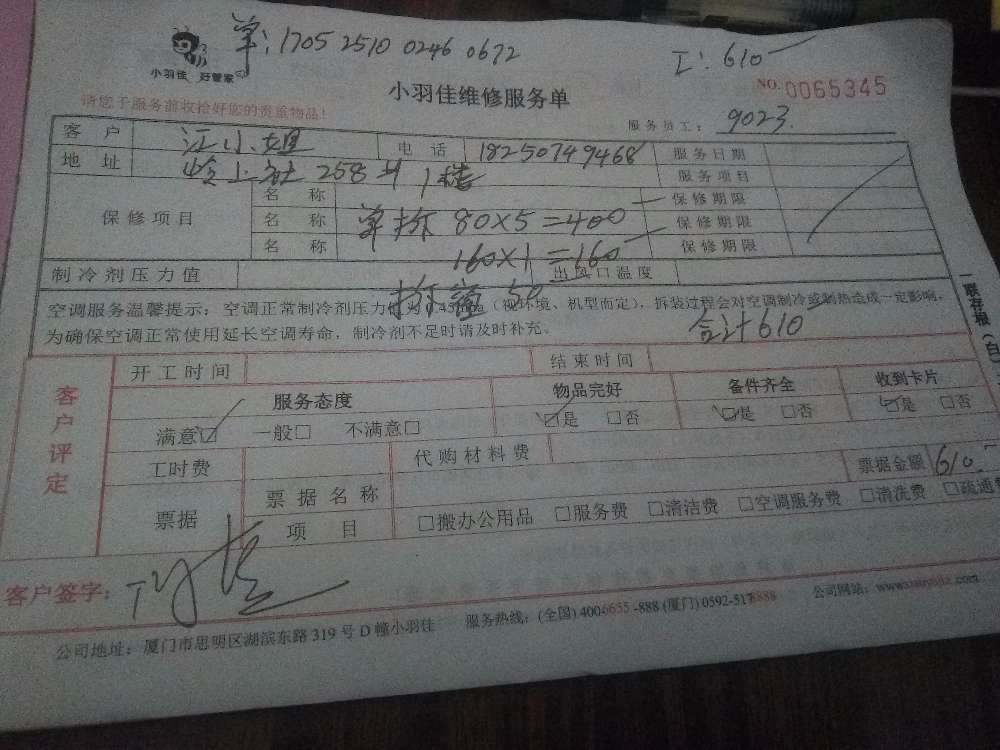 单: 1705 2510 0246 0672
工: 610
小羽佳 好管家
小羽佳维修服务单
NO. 0065345
请您于服务前收拾好您的贵重物品!
服务员工: 9023
客 户 江小姐 电 话 18250749468 服务日期
地 址 岭上社 258号 1楼 服务项目
保修项目
名 称 保修期限
名 称 单拆 80×5=400 保修期限
名 称 160×1=160 保修期限
制冷剂压力值 出风口温度
50
空调服务温馨提示: 空调正常制冷剂压力值为0.45Mpa (视环境、机型而定), 拆装过程会对空调制冷或制热造成一定影响,
为确保空调正常使用延长空调寿命, 制冷剂不足时请及时补充。
合计610
一联存根 (白
客户评定
开工时间 结束时间
服务态度 物品完好 备件齐全 收到卡片
满意☑ 一般□ 不满意□ ☑是 □否 ☑是 □否 ☑是 □否
工时费 代购材料费
票据 票据名称 票据金额 610
项 目 □搬办公用品 □服务费 □清洁费 □空调服务费 □清洗费 □疏通费
客户签字:
公司地址: 厦门市思明区湖滨东路 319 号 D 幢小羽佳 服务热线: (全国) 4006655-888 (厦门) 0592-5178888 公司网站: